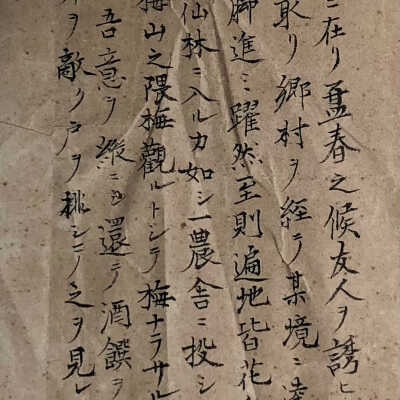 ニ在リ孟春之候友人ヲ誘ヒ
取リ郷村ヲ経テ某境ニ
脚進ミ躍然至則遍地皆花
仙林ニ入ルカ如シ一農舎ニ投シ
梅山之隈梅観ルトシテ梅ナラサル
吾意ヲ縦ニシ還テ酒饌ヲ
ヲ敵ク戸ヲ排シテ之ヲ見レ